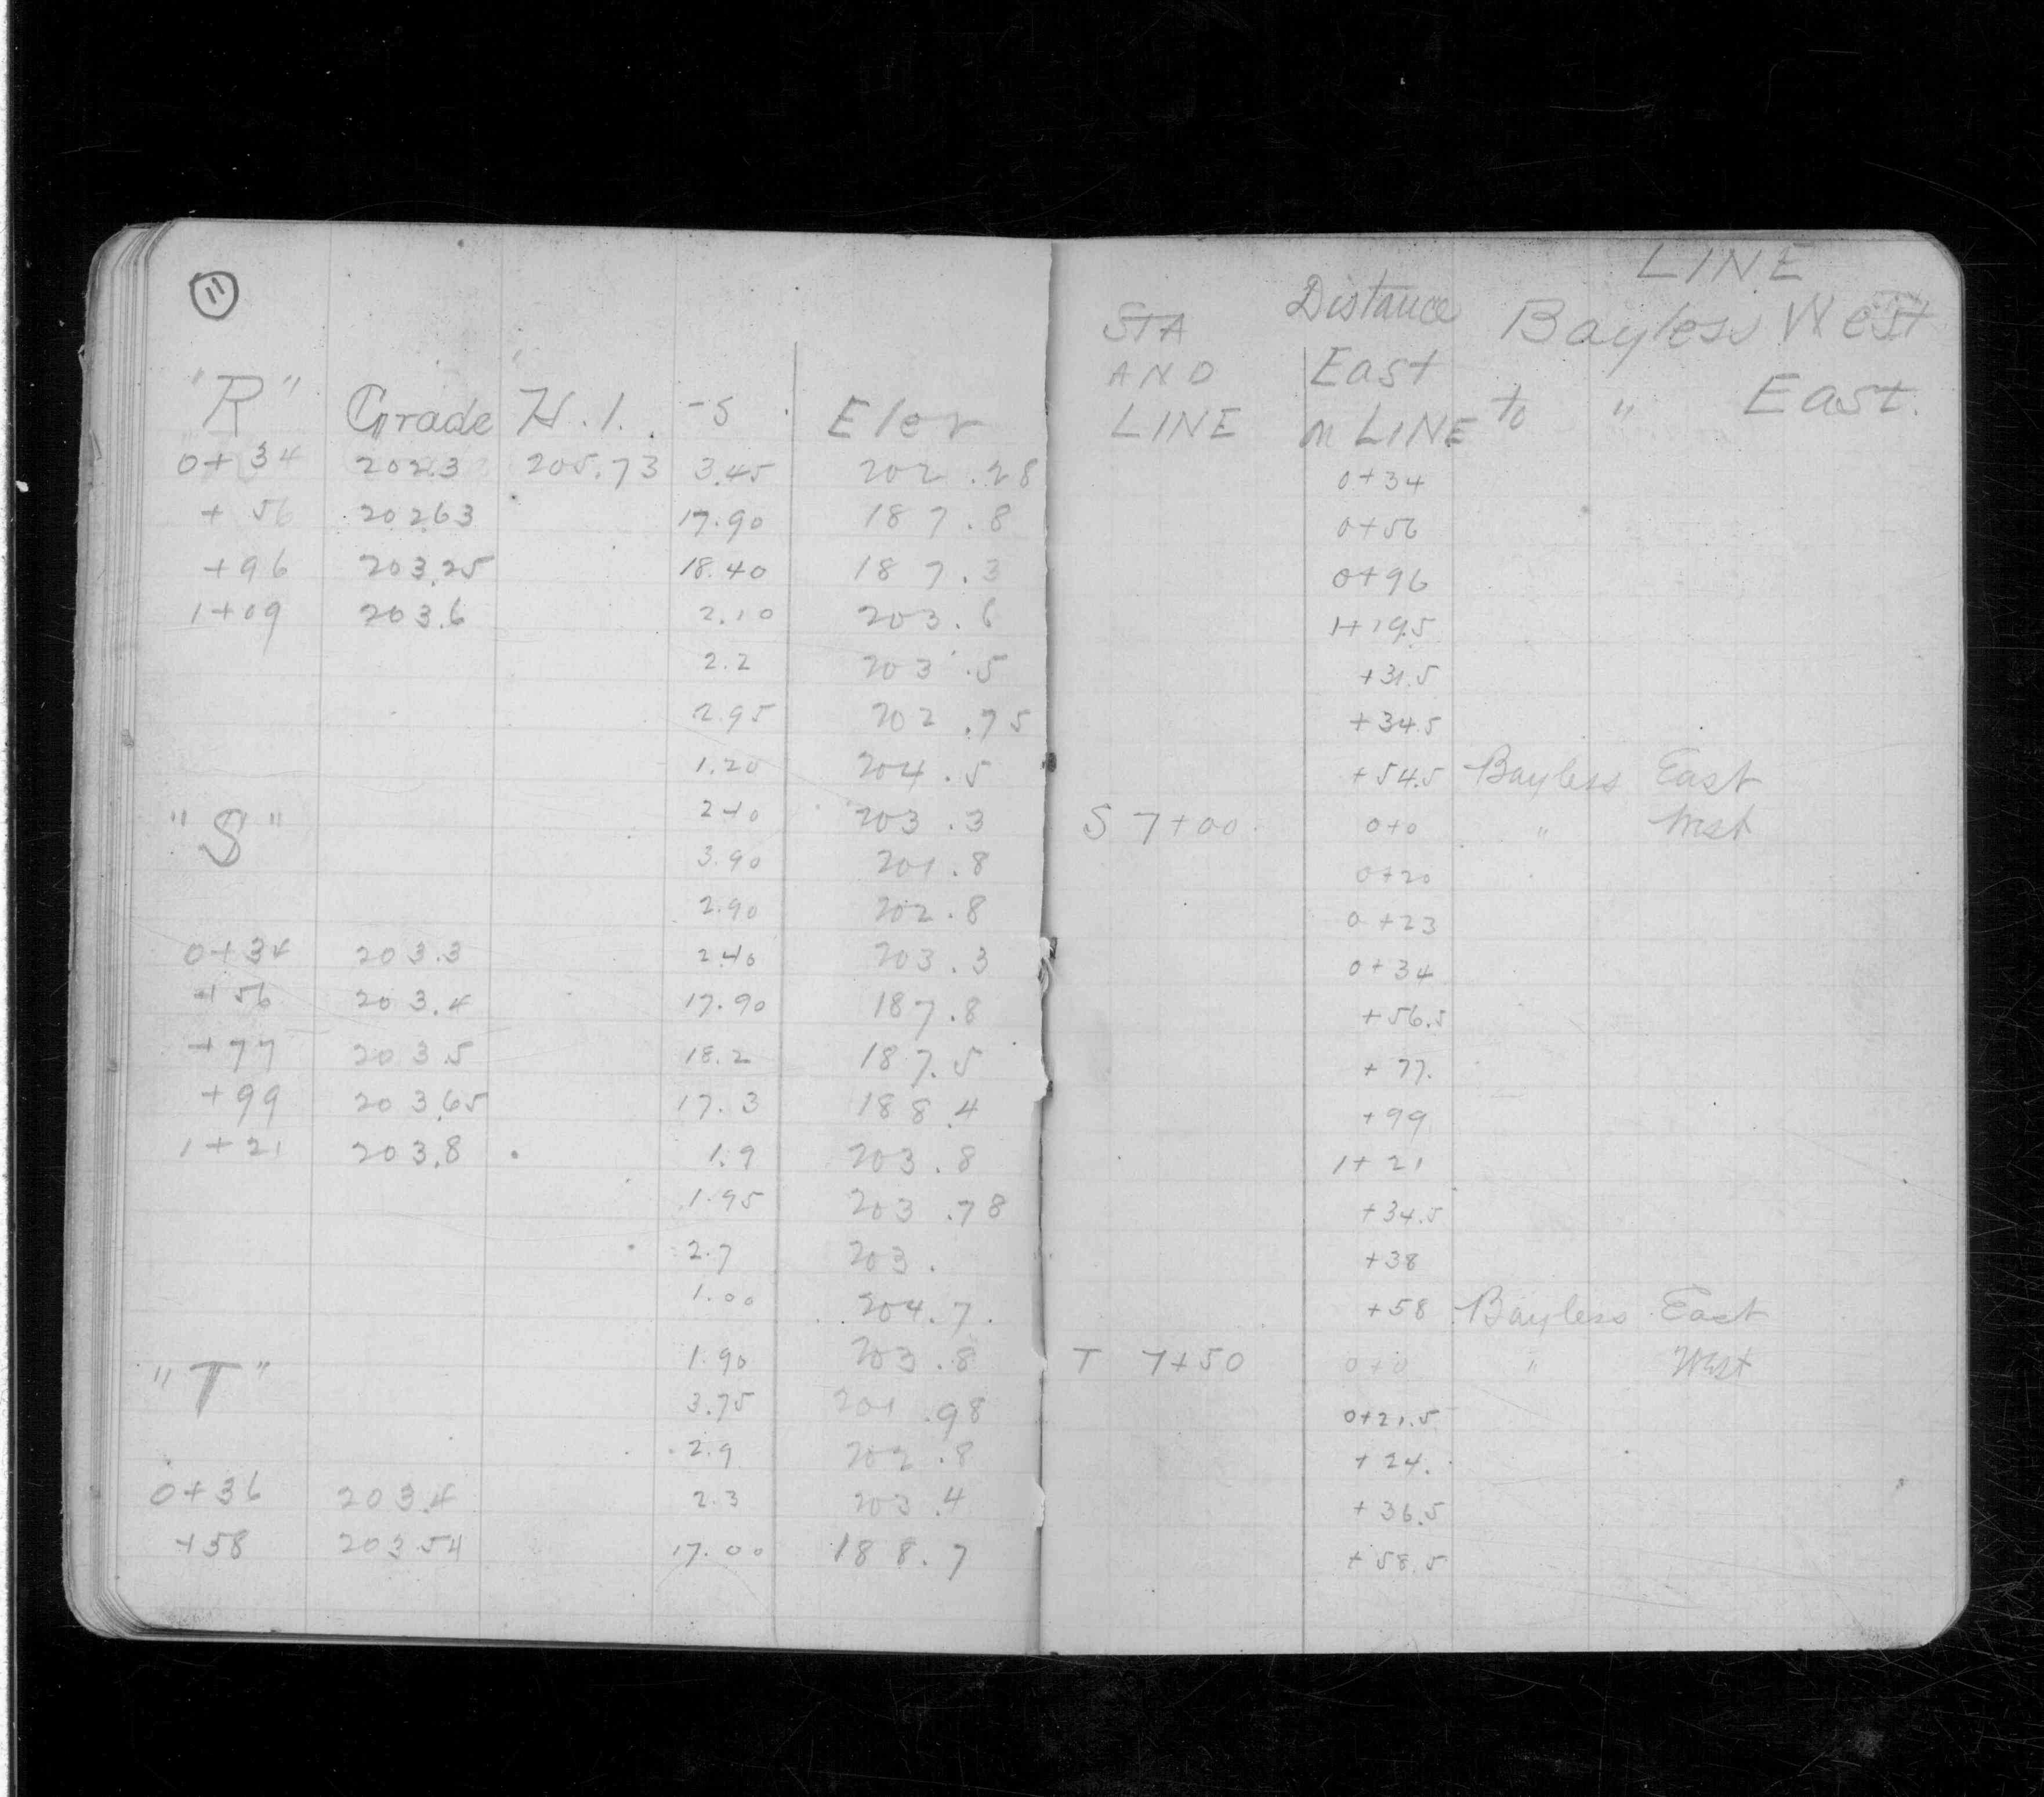 11
"R" Grade H.I. -S Elev
0+34 202.3 205.73 3.45 202.28
+56 202.63 17.90 187.8
+96 203.25 18.40 187.3
1+09 203.6 2.10 203.6
2.2 203.5
2.95 202.75
1.20 204.5
"S" 2.40 203.3
3.90 201.8
2.90 202.8
0+34 203.3 2.40 203.3
+56 203.4 17.90 187.8
+77 203.5 18.2 187.5
+99 203.65 17.3 188.4
1+21 203.8 1.9 203.8
1.95 203.78
2.7 203.
1.00 204.7.
"T" 1.90 203.8
3.75 201.98
2.9 202.8
0+36 203.4 2.3 203.4
+58 203.54 17.00 188.7
LINE
STA Distance Bayless West
AND East
LINE on LINE to " East.
0+34
0+56
0+96
1+19.5
+31.5
+34.5
+54.5 Bayless East
S 7+00. 0+0 " West
0+20
0+23
0+34
+56.5
+77.
+99
1+21
+34.5
+38
+58 Bayless East
T 7+50 0+0 " West
0+21.5
+24.
+36.5
+58.5